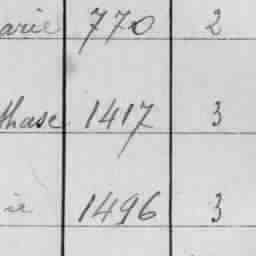 arie 770 2
thase 1417 3
ie 1496 3